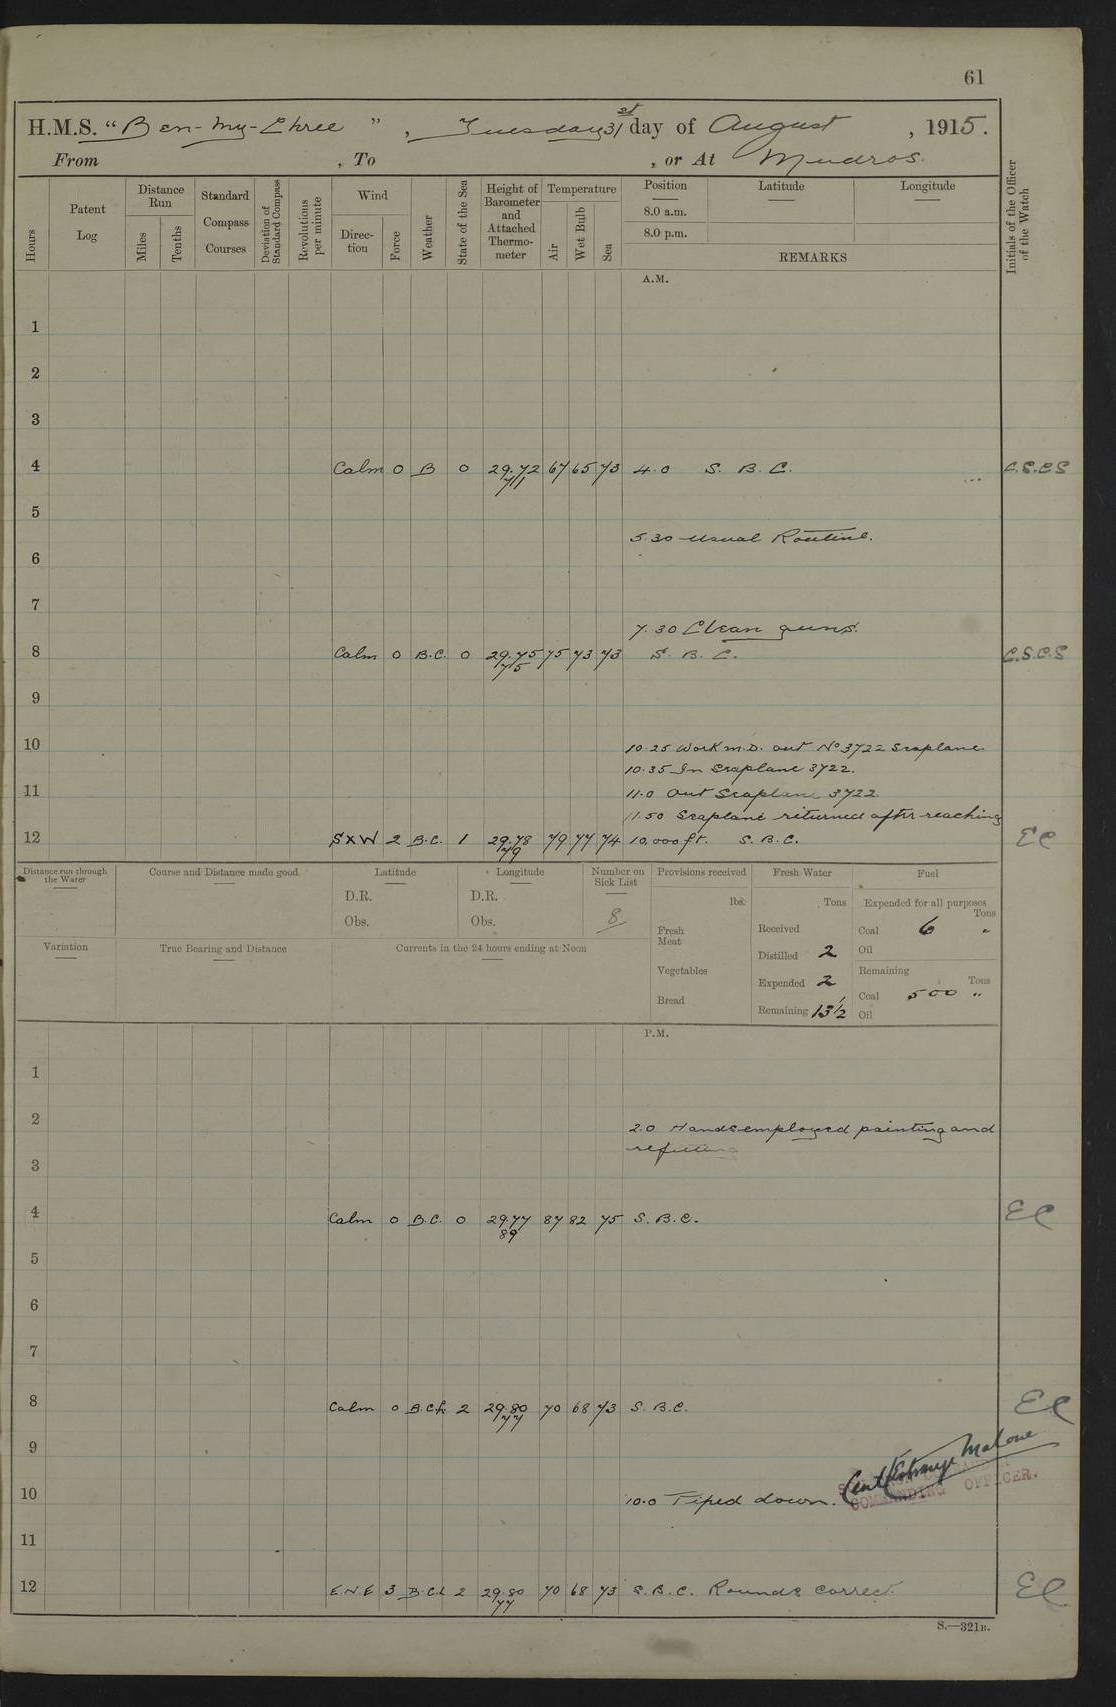 61
H.M.S. "Ben-my-Chree", Tuesday 31st day of August, 1915.
From , To , or At Mudros.
Hours
Patent Log
Distance Run
Miles
Tenths
Standard Compass Courses
Deviation of Standard Compass
Revolutions per minute
Wind
Direc-tion
Force
Weather
State of the Sea
Height of Barometer and Attached Thermo-meter
Temperature
Air
Wet Bulb
Sea
Position
8.0 a.m.
8.0 p.m.
Latitude
Longitude
REMARKS
Initials of the Officer of the Watch
A.M.
1
2
3
4 Calm 0 B 0 29.72 67 65 73 4.0 S. B. C. C.S.C.S
71
5
5.30 Usual Routine.
6
7
7.30 Clean guns.
8 Calm 0 B.C. 0 29.75 75 73 73 S. B. C. C.S.C.S
75
9
10 10.25 Work M.D. out No 3722 Seaplane
10.35 In Seaplane 3722.
11 11.0 Out Seaplane 3722.
11.50 Seaplane returned after reaching
12 SXW 2 B.C. 1 29.78 79 77 74 10,000 ft. S.B.C. EC
79
Distance run through the Water
Course and Distance made good
Latitude
D.R.
Obs.
Longitude
D.R.
Obs.
Number on Sick List
8
Provisions received
lbs.
Fresh Meat
Vegetables
Bread
Fresh Water
Tons
Received
Distilled 2
Expended 2
Remaining 131/2
Fuel
Expended for all purposes
Tons
Coal 6 "
Oil
Remaining
Tons
Coal 500 "
Oil
Variation
True Bearing and Distance
Currents in the 24 hours ending at Noon
P.M.
1
2
2.0 Hands employed painting and
3 refitting
4 Calm 0 B.C. 0 29.77 87 82 75 S.B.C. EC
89
5
6
7
8 Calm 0 2 29.80 70 68 73 S.B.C. EC
77
9
Malone
10 10.0 Piped down. COMMANDING OFFICER.
11
12 E.N.E 3 2 29.80 70 68 73 S.B.C. Rounds correct. EC
77
S.—321B.